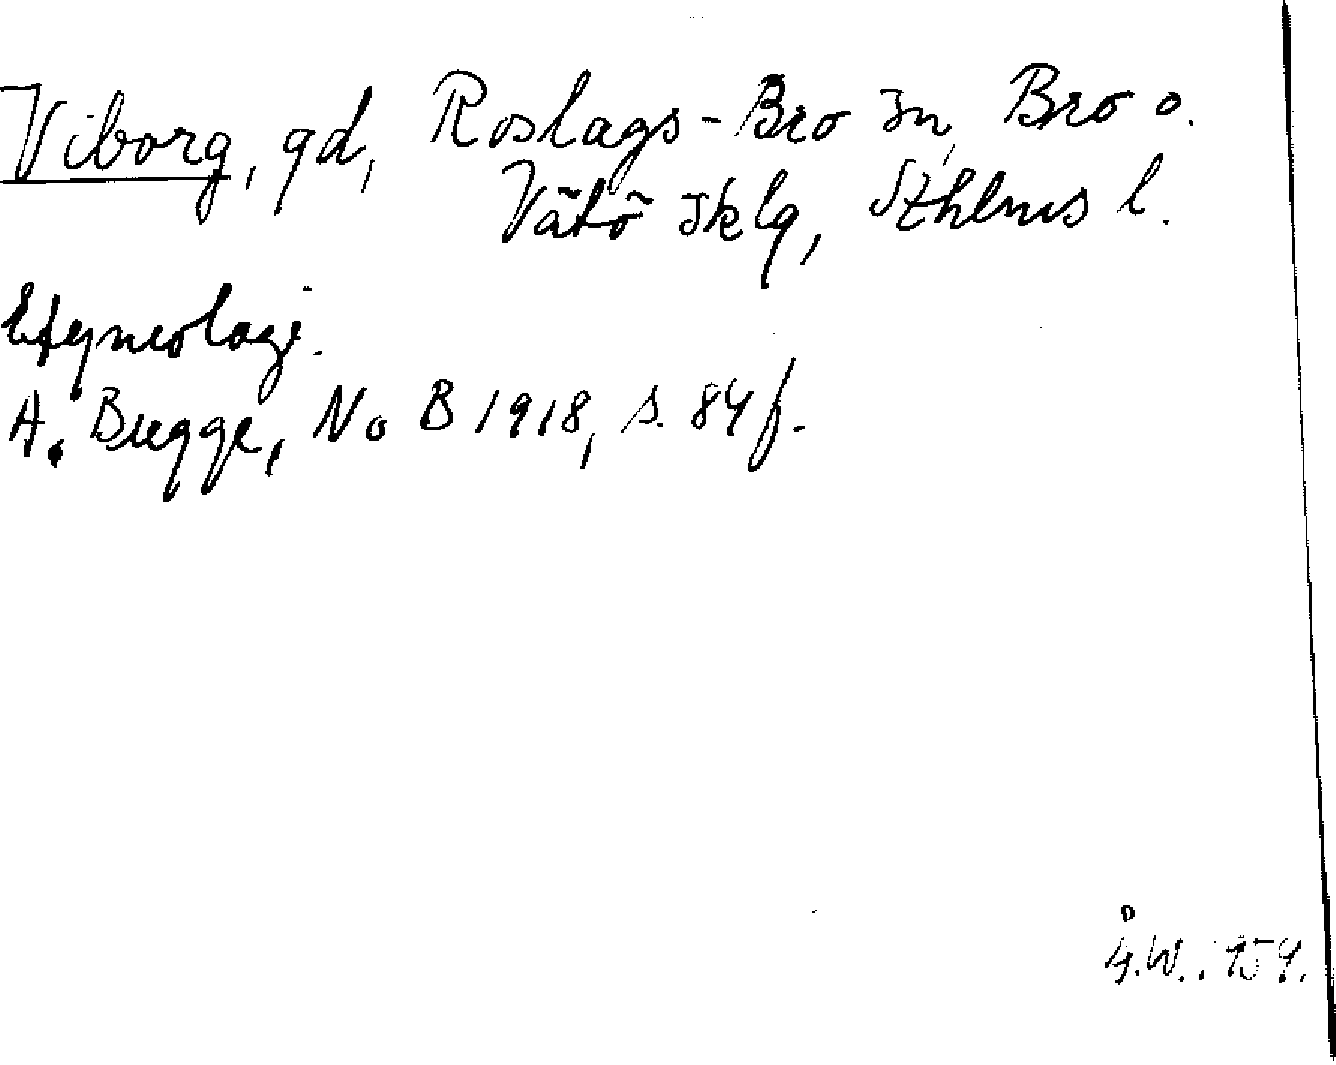 Viborg, gd, Roslags-Bro sn, Bro o.
Vätö sklg, Sthlms l.
Etymologi.
A. Bugge, NoB 1918, s. 84 f.
Å.W. 1954.